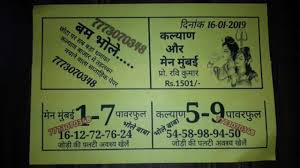 7773070348
बम भोले....
7773070348
दिनांक 16-01-2019
कल्याण
और
मेन मुंबई
प्रो. रवि कुमार
Rs.1501/-
मेन मुंबई 1-7 पावरफुल
भोले बाबा
16-12-72-76-24
जोड़ी की पलटी अवश्य खेलें
कल्याण 5-9 पावरफुल
भोले बाबा
54-58-98-94-50
जोड़ी की पलटी अवश्य खेलें